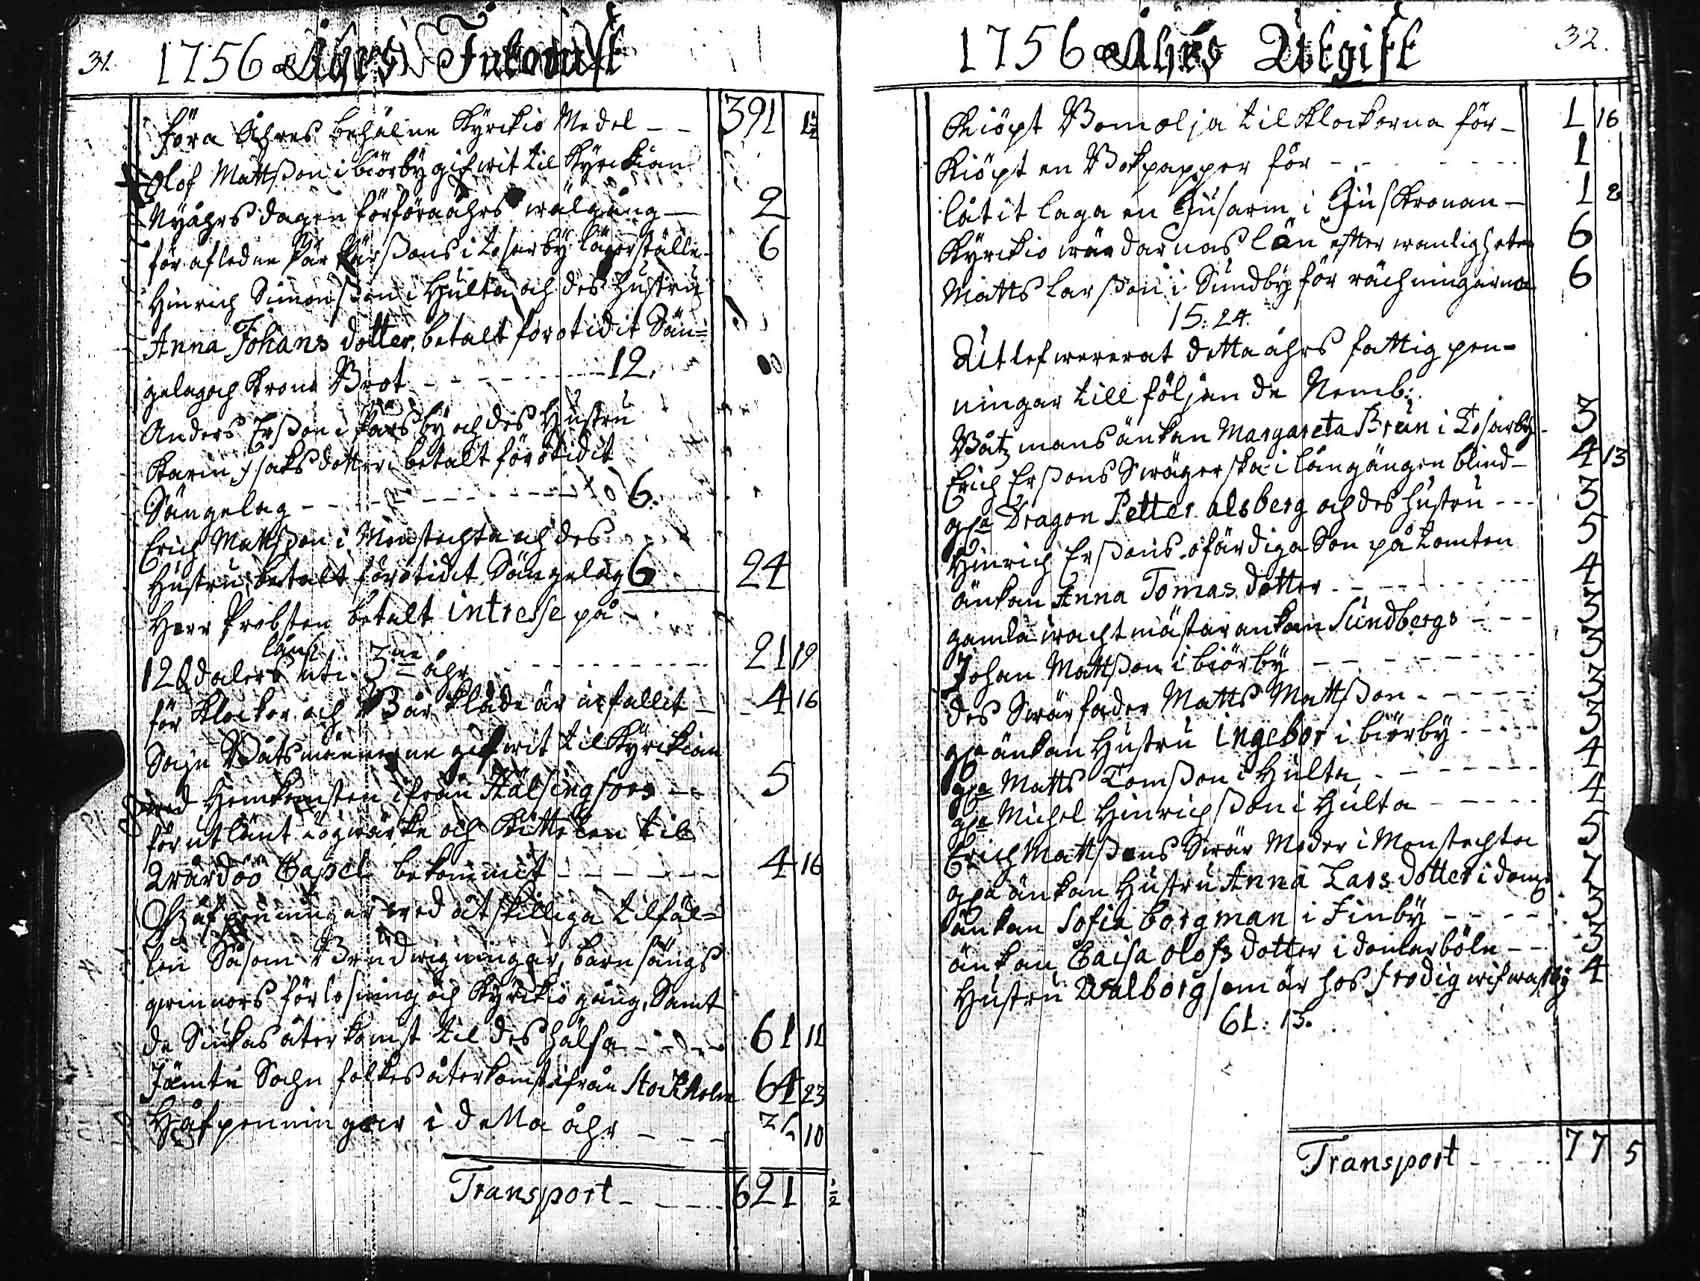 31.
1756 Åhrs Inkomst
föra Åhres behålne Kyrckio Medel - - 391 1½
Olof Mattßon i biörby gifwit til Kyrckian
Nyåhrsdagen för föra åhrs wälgång — 2
för afledne Pär Pärßons i Tosarby lägerställe - 6
Hinrich Simonßon i Hulta och des Hustru
Anna Johans dotter, betalt förotidit Sän=
gelag och Krono Brot - - - - 12.
Anders Erßon i Pärsby och des Hustru
Karin Isaks dotter betalt förotidit
Sängelag - - - - - 6.
Erich Mattßon i Monstechta och des
Hustru betalt förotidit Sängelag 6 24
Herr Probsten betalt intresse på
låns
120 dalers uti 3ne åhr - - - - 21 19
för Klockor och Bår Kläde är infallit - 4 16
Sochn Båtsmännerne gifwit til Kyrckian
wid Hemkomsten ifrån Hälsingfors - - 5
för utlånt
och
til
Wårdöö Capel bekommit - - - - - 4 16
Håfpenningar wed åtskilliga tilfäl=
len Såsom Brudwigningar, barnsängs
qwinnors förlosning och Kyrckio gång, Samt
de Siukas återkomst til des hälsa - - - 61 11
Jämte Sochn folkes återkomst ifrån Stockholm 64 23
Håfpenningar i detta åhr - - - 36 10
Transport - - - - 621 ½
32.
1756 Åhrs Utgift
Kiöpt Bomolja til Klockorna för - 1 16
Kiöpt en Bokpapper för - - - - - 1
låtit laga en liusarm i Liuskronan - 1 8
Kyrckio wärdarnas lön efter wanligheten 6
Matts Larßon i Sundby för räckningarna 6
15: 24.
Utlefwererat detta åhrs fattig pen-
ningar till följande Nemb:
Båtzmans änkan Margareta Brun i Tosarby - 3
Erich Erßons Swägerska i långängen blind - 4 13
gla Dragon Petter alsberg och des hustru - - - 3
Hinrich Erßons ofärdiga Son på tomten 5
änkan Anna Tomas dotter - - - - - 4
gamla wachtmästar änkan Sundbergs - - - 3
Johan Mattßon i biörby - - - - - 3
des Swärfader Matts Mattßon - - - - - 3
gla änkan Hustru Ingebor i biörby - - - - 3
gla Matts Tomßon i Hulta - - - - - 4
gla Michel Hinrichßon i Hulta - - - - 4
Erich Mattßons Swär Moder i Monstechta 5
gla änkan Hustru Anna Lars dotter i 2
änkan Sofia borgman i Finby - - - - 3
änkan Caisa olofs dotter i dönkarböle - - 3
Hustru Walborg som är hos frodig 4
61: 13.
Transport - - - - 77 5